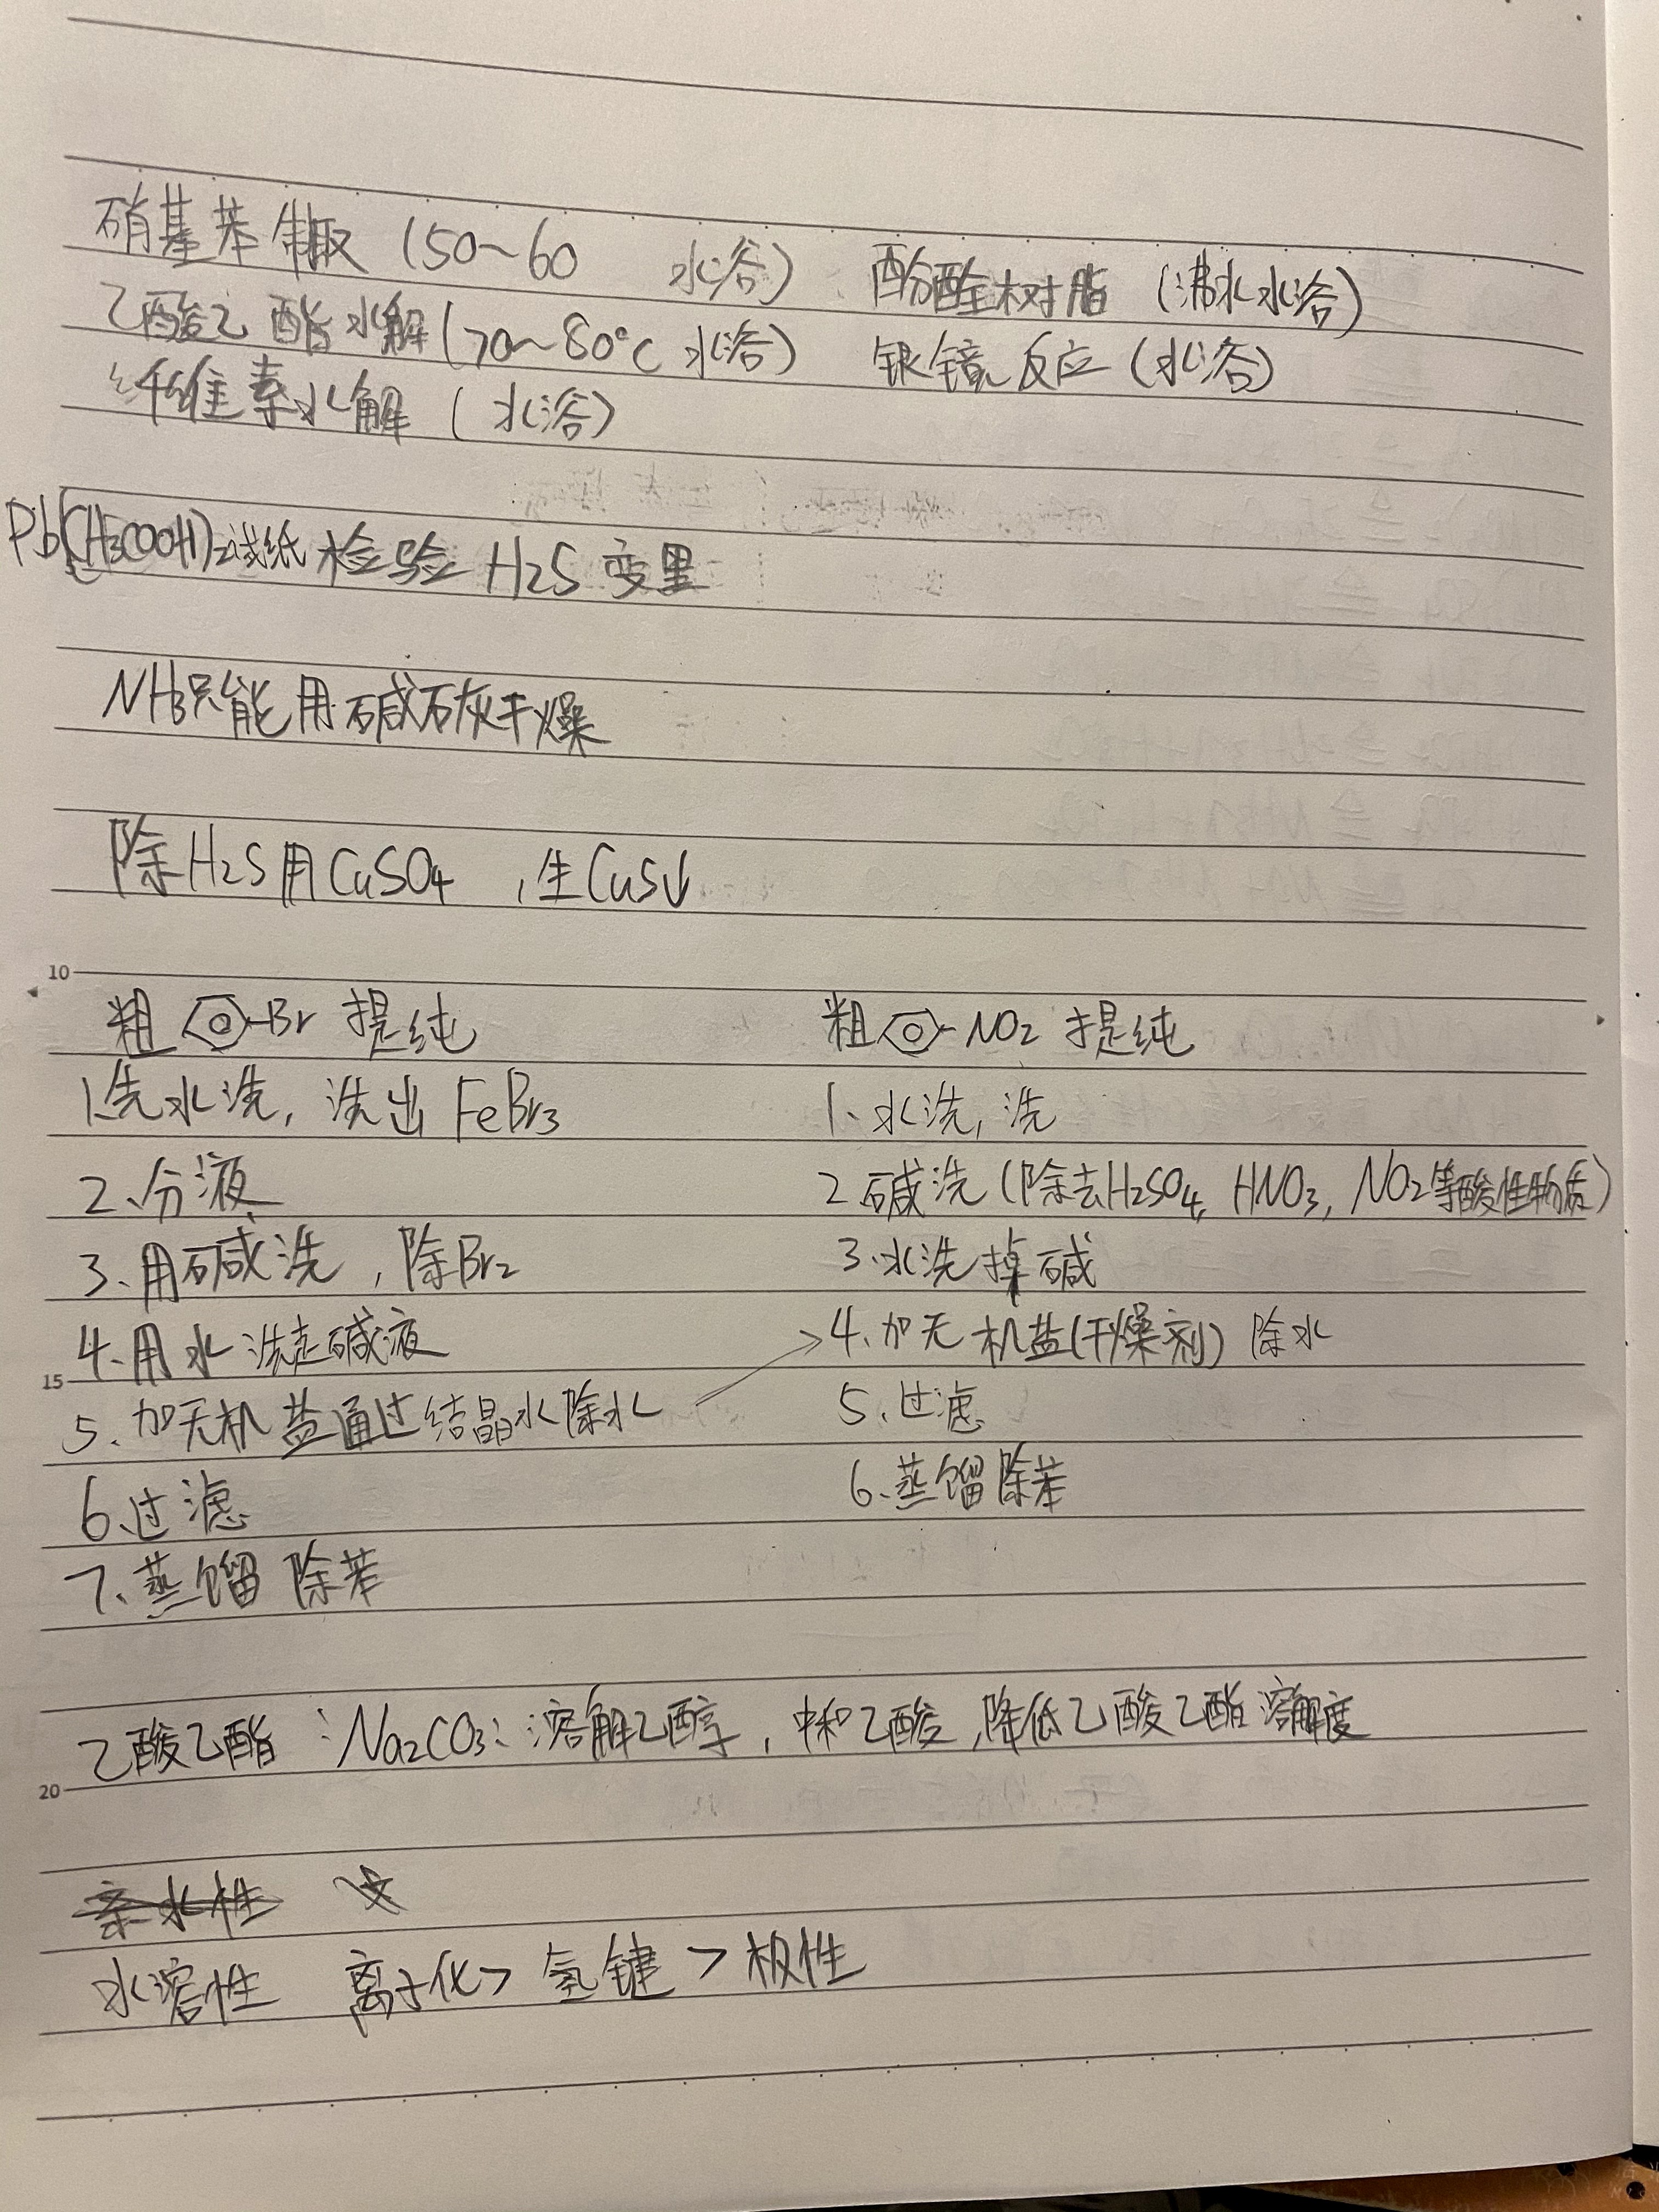 硝基苯制取（50～60 水浴） 酚醛树脂（沸水水浴）
乙酸乙酯水解（70～80°C 水浴） 银镜反应（水浴）
纤维素水解（ 水浴）
Pb(CH3COOH)2试纸检验 H2S 变黑
NH3只能用碱石灰干燥
除H2S用CuSO4 ，生CuS↓
10
粗 -Br 提纯
1.先水洗，洗出 FeBr3
2、分液
3、用碱洗，除Br2
4、用水洗走碱液
15
5、加无机盐通过结晶水除水
6、过滤
7、蒸馏 除苯
粗 -NO2 提纯
1、水洗，洗
2 碱洗（除去H2SO4, HNO3, NO2等酸性物质）
3、水洗掉碱
4、加无机盐(干燥剂) 除水
5、过滤
6、蒸馏除苯
乙酸乙酯：Na2CO3：溶解乙醇，中和乙酸，降低乙酸乙酯溶解度
20
亲水性
水溶性 离子化＞氢键＞极性